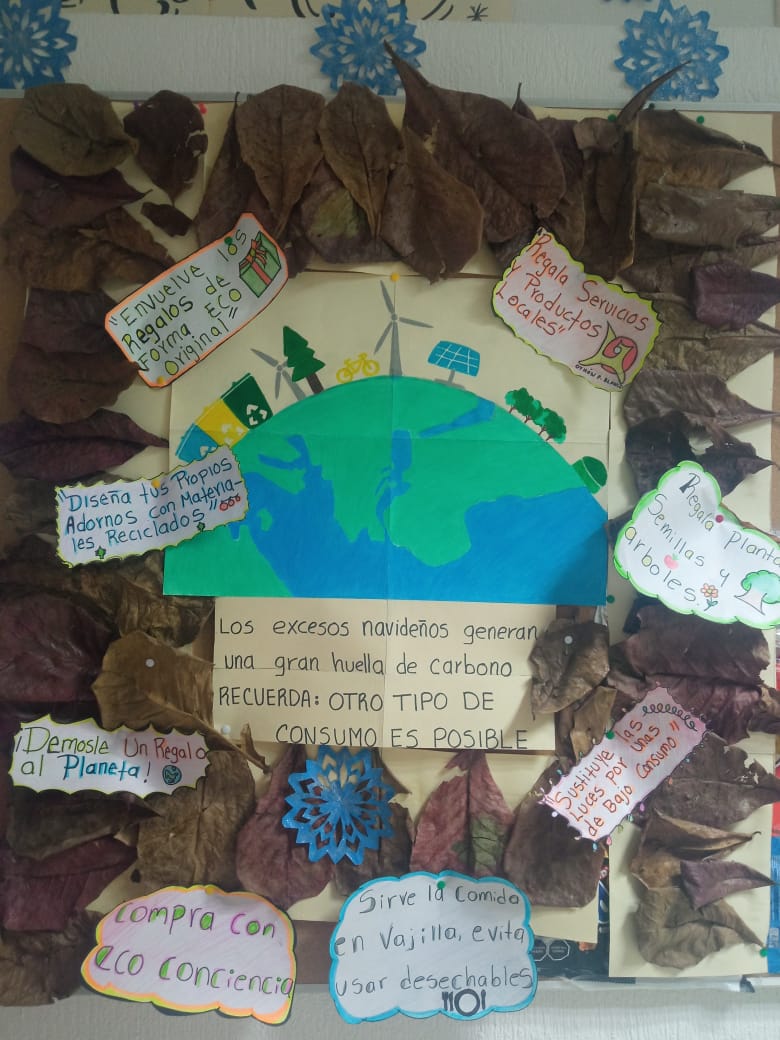 "Envuelve los
Regalos de
Forma Eco
original"
Regala Servicios
y Productos
Locales"
OTHÓN P. BLANCO
"Diseña tus Propios
Adornos con Materia-
les Reciclados"
Regala Planta
Semillas y
arboles.
Los excesos navideños generan
una gran huella de carbono
RECUERDA: OTRO TIPO DE
CONSUMO ES POSIBLE
¡Demosle Un Regalo
al Planeta!
"Sustituye las
Luces por unas
de Bajo Consumo"
Compra con
eco conciencia
Sirve la Comida
en Vajilla, evita
usar desechables